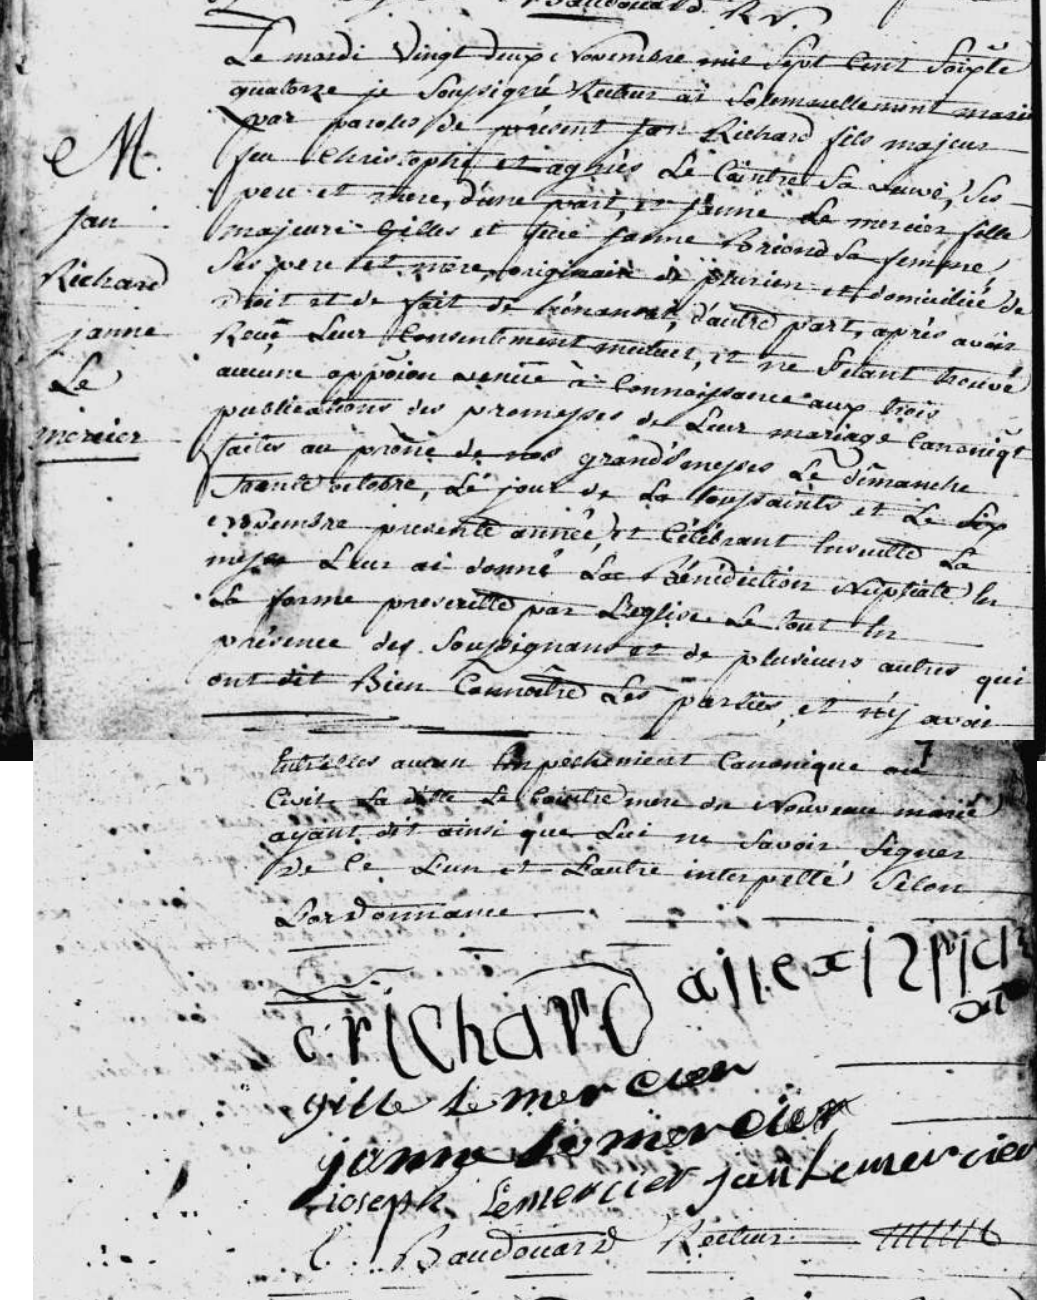 Baudouard Rr.
Le mardi vingt deux novembre mil sept cent soixte
quatorze je soussigné Recteur ai solemnellement marié
par paroles de présent jan Richard fils majeur
feu Christophe et agnès Le Cointre sa veuve, ses
pere et mere, d'une part, et janne Le mercier fille
majeure Gilles et feue janne Briond sa femme,
ses pere et mere, originaire de plurien et domiciliée de
Droit et de fait de hénansal, d'autre part, après avoir
Reçu Leur Consentement mutuel, et ne s'etant trouvé
aucune oppôion venüe à Connoissance aux trois
publications des promesses de Leur mariage Canoniqt
faites au prône de nos grand'messes Le dimanche
trente octobre, Le jour de La toussaints et Le six
novembre presente année, et Célébrant Ensuitte La
messe Leur ai donné La Bénédiction Nuptiale En
La forme prescritte par L'eglise Le tout En
présence des soussignans et de plusieurs autres qui
ont dit Bien Connoître Les parties, et n'y avoir
M.
jan
Richard
janne
Le
mercier
Entr'elles aucun Empeschement Canonique ou
Civil La ditte Le Cointre mere du nouveau marié
ayant dit ainsi que Lui ne savoir signer
de Ce L'un et L'autre interpellé selon
L'ordonnance
c. richard
gille Le mercier
janne Le mercier
joseph Lemercier jan Lemercier
Baudouard Recteur